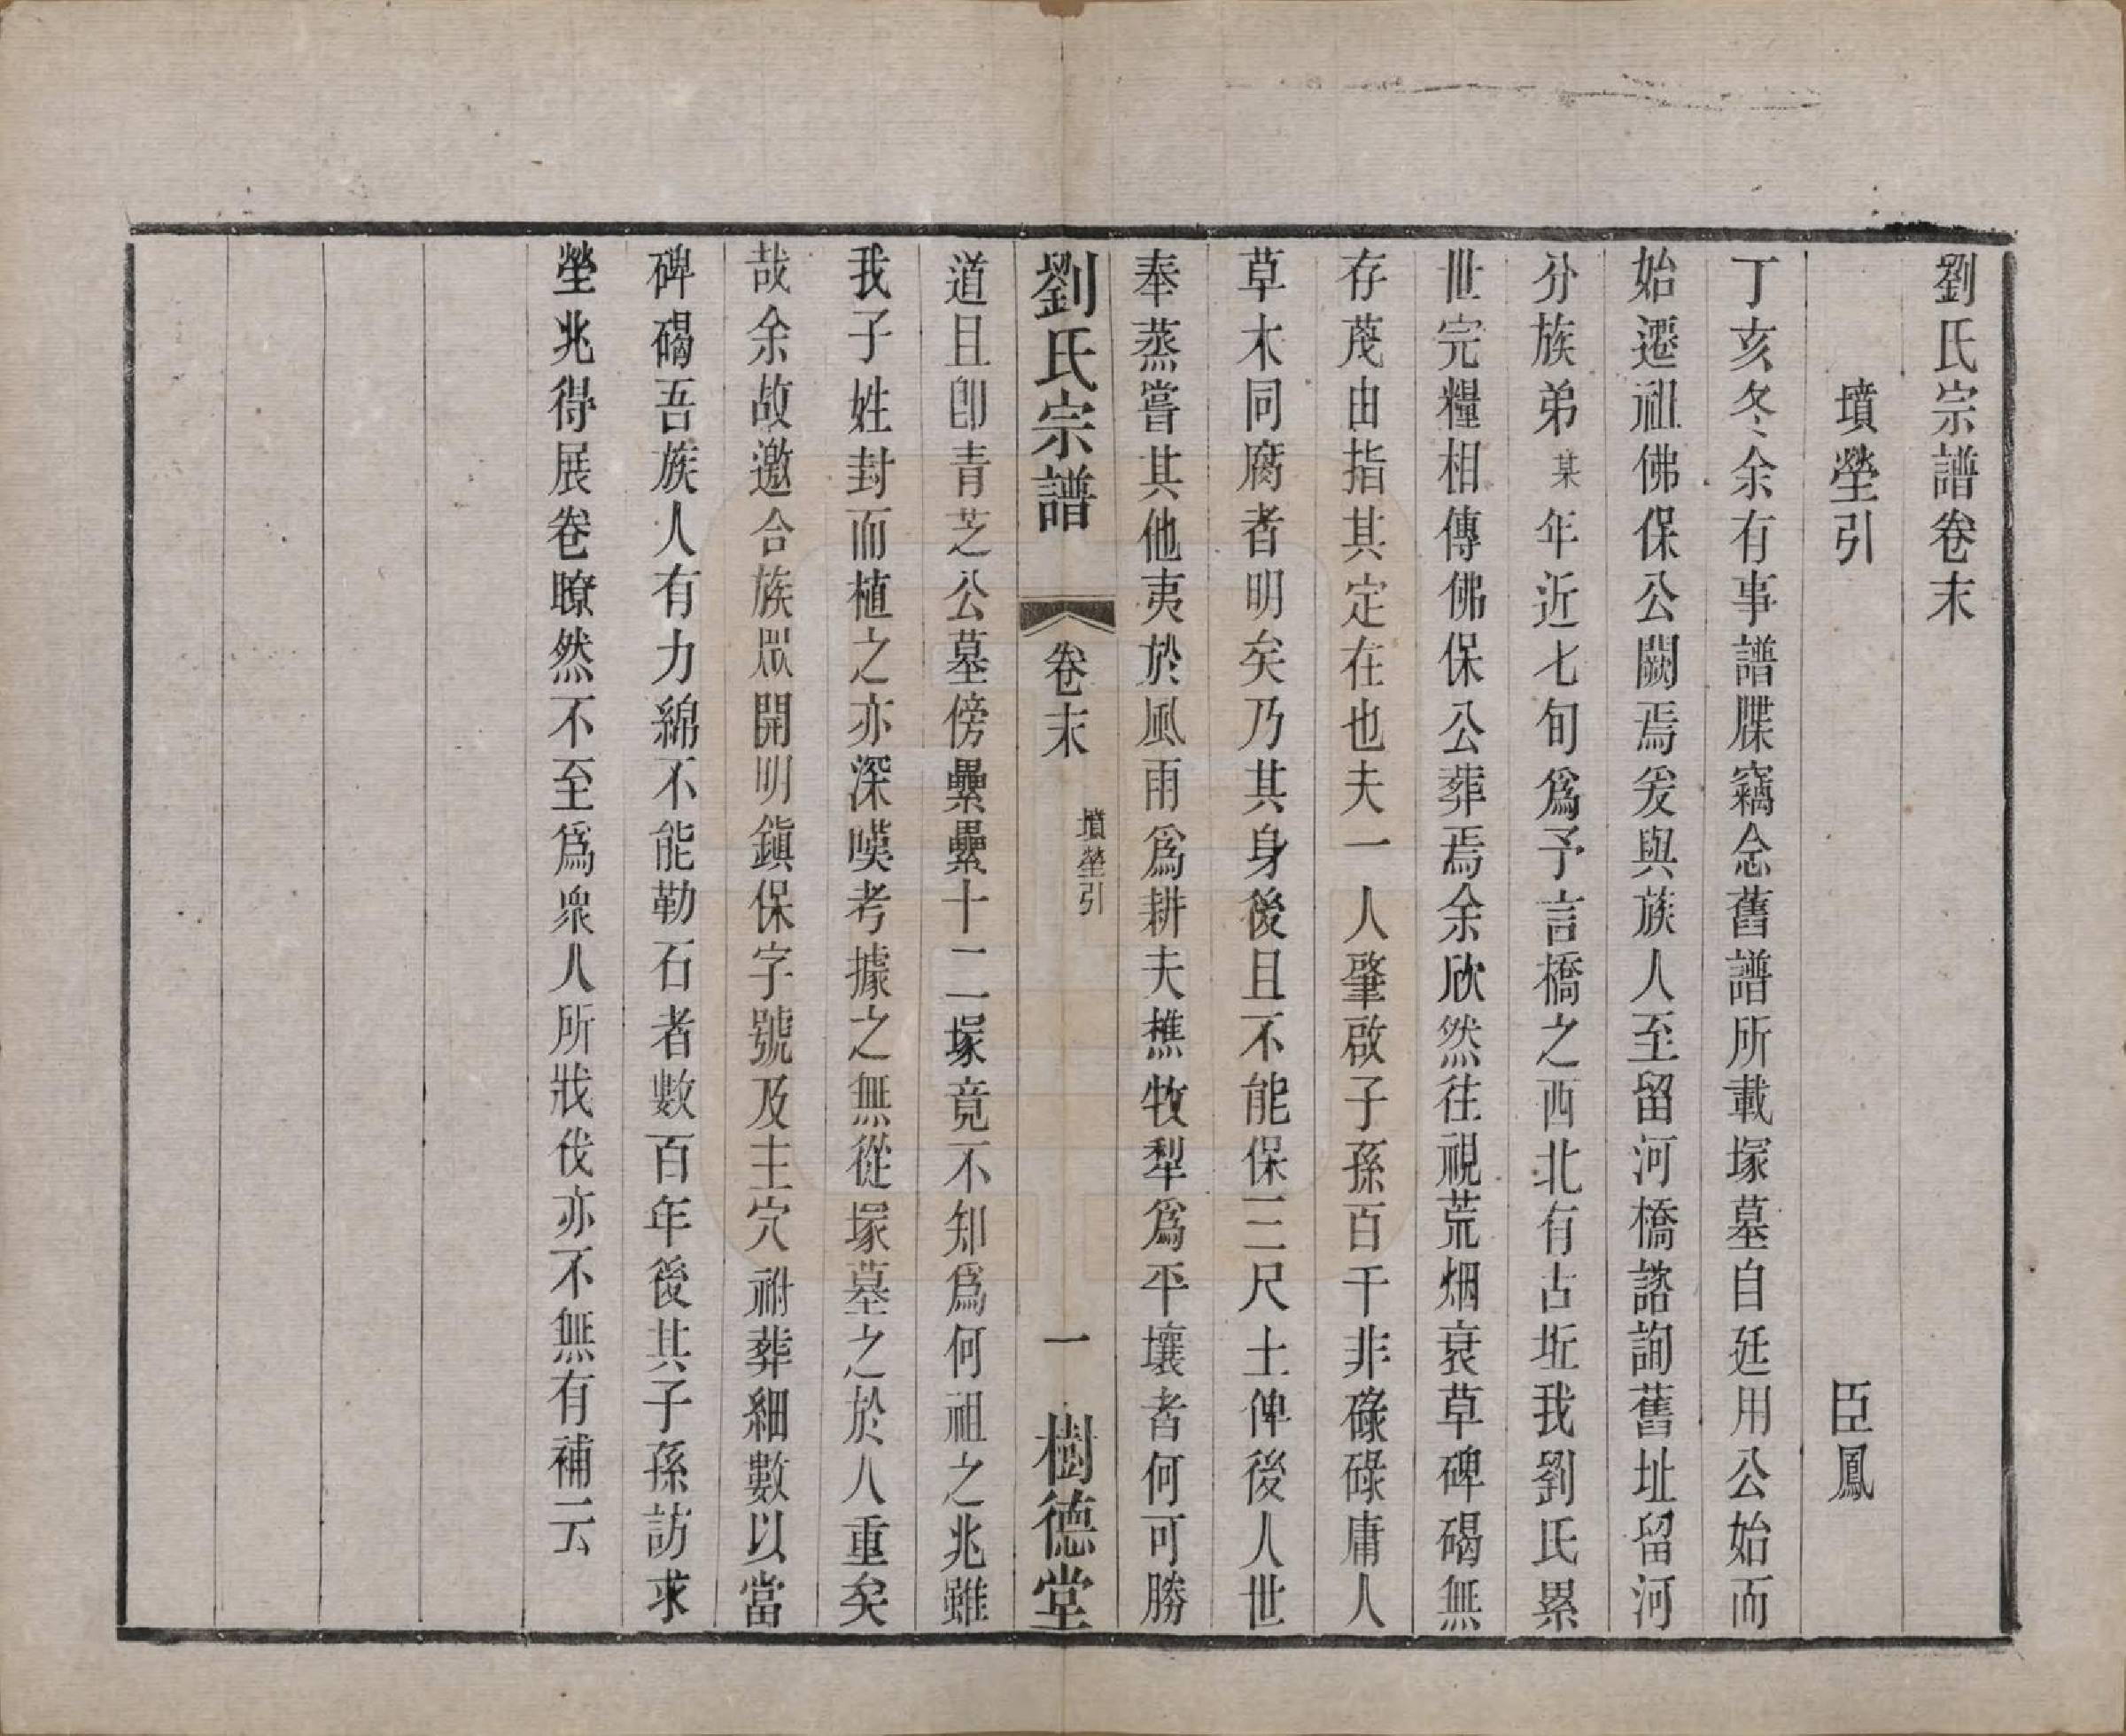 劉氏宗譜卷末
墳塋引　臣鳳
丁亥冬余有事譜牒竊念舊譜所載塚墓自廷用公始而
始遷祖佛保公闕焉爰與族人至留河橋諮詢舊址留河
分族弟某年近七旬爲予言橋之西北有古坵我劉氏累
世完糧相傳佛保公葬焉余欣然往視荒烟衰草碑碣無
存茂由指其定在也夫一人肇啟子孫百千非碌碌庸人
草木同腐者明矣乃其身後且不能保三尺土俾後人世
奉蒸嘗其他夷於風雨爲耕夫樵牧犁爲平壤者何可勝
劉氏宗譜　卷末　墳塋引　一　樹德堂
道且卽青芝公墓傍纍纍十二塚竟不知爲何祖之兆雖
我子姓封而植之亦深嘆考據之無從塚墓之於人重矣
哉余故邀合族眾開明鎮保字號及主穴祔葬細數以當
碑碣吾族人有力綿不能勒石者數百年後其子孫訪求
塋兆得展卷瞭然不至爲衆人所戕伐亦不無有補云